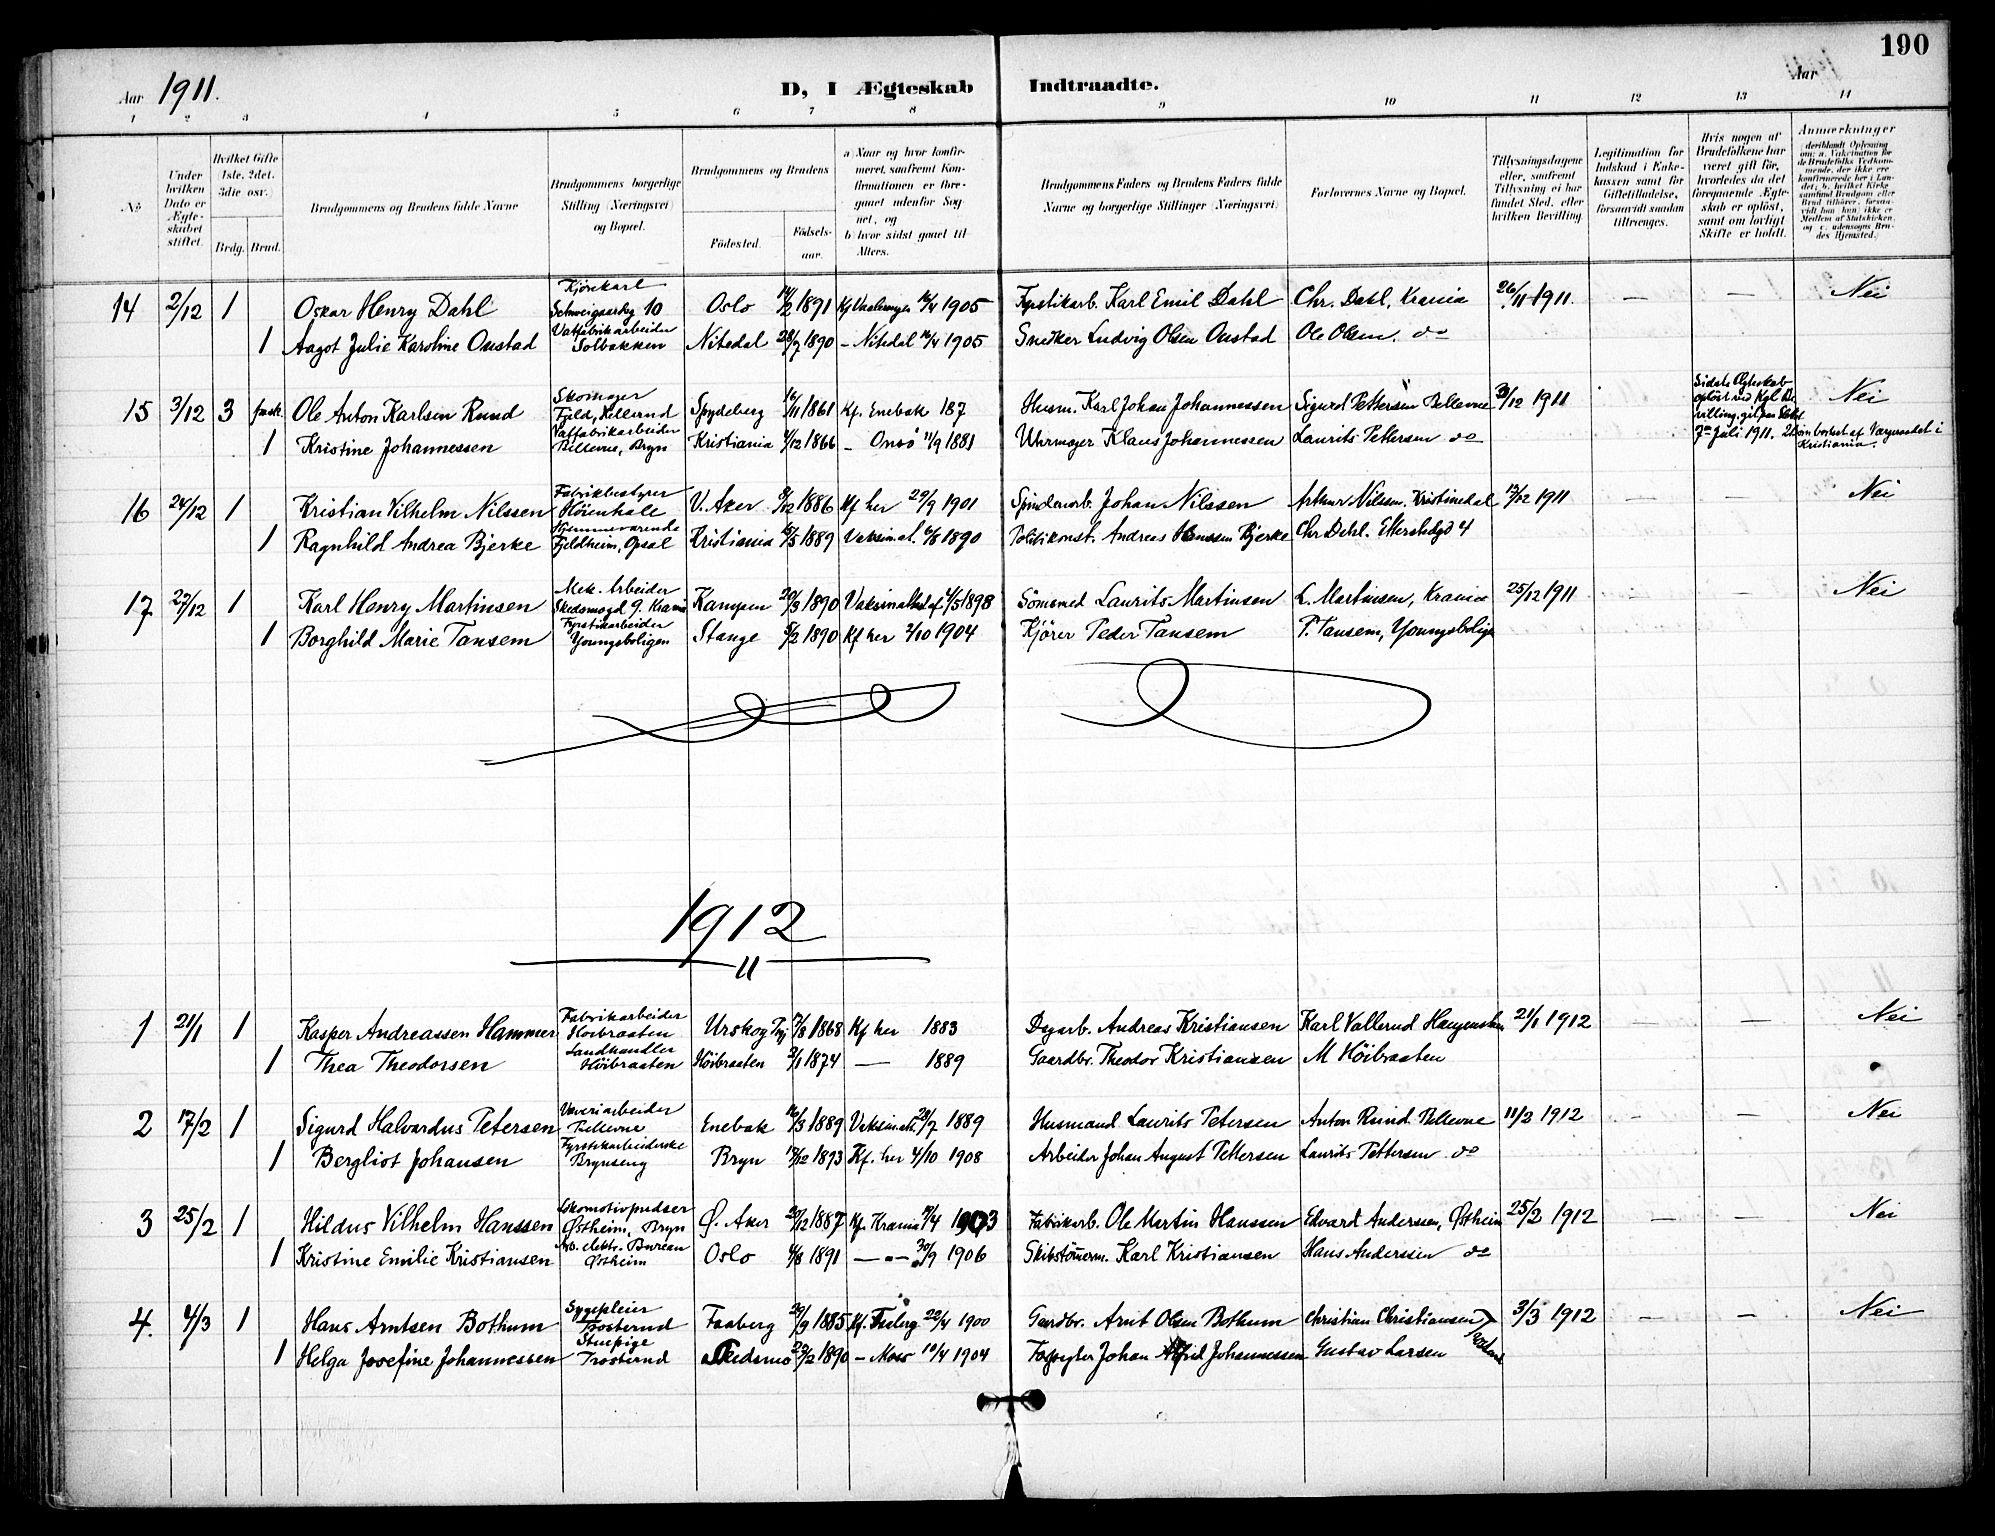 190
Aar 1911. D, I Ægteskab Indtraadte. Aar
1 2 3 4 5 6 7 8 9 10 11 12 13 14
№
Under hvilken Dato er Ægteskabet stiftet.
Hvilket Gifte 1ste. 2det. 3die osv.
Brdg. Brud.
Brudgommens og Brudens fulde Navne
Brudgommens borgerlige Stilling (Næringsvei) og Bopæl.
Brudgommens og Brudens
Födested. Födselsaar.
a Naar og hvor konfirmeret, saafremt Konfirmationen er foregaaet udenfor Sognet, og
b hvor sidst gaaet til Alters.
Brudgommens Faders og Brudens Faders fulde Navne og borgerlige Stillinger (Næringsvei)
Forlovernes Navne og Bopæl.
Tillysningsdagene eller, saafremt Tillysning ei har fundet Sted, efter hvilken Bevilling
Legitimation for Indskud i Enkekassen samt for Giftetilladelse, forsaavidt saadan tiltrænges.
Hvis nogen af Brudefolkene har været gift før, hvorledes da det foregaaende Ægteskab er opløst, samt om lovligt Skifte er holdt.
Anmærkninger
14 2/12 1 Oskar Henry Dahl Kjörekarl Schweigaardsg 10 Oslo 14/2 1891 Kf Vaalerengen 16/4 1905 Fyrstikarb. Karl Emil Dahl Chr. Dahl, Krania 26/11 1911. — — Nei
1 Aagot Julie Karoline Onstad Vatfabrikarbeider Solbakken Nitedal 28/7 1890 — Nitedal 16/4 1905 Snedker Ludvig Olsen Onstad Ole Olsen. do
15 3/12 3 frask. Ole Anton Karlsen Rund Skomager Fjeld, Kellerud Spydeberg 16/11 1861 Kf. Enebak 187 Husm. Karl Johan Johannessen Sigurd Pettersen Bellevue 3/12 1911 Sidste Ægteskab opløst ved Kgl. Bevilling, git 7de Juli 1911. Nei
1 Kristine Johannessen Vatfabrikarbeider Bellevue, Bryn Kristiania 4/12 1866 — Onsö 11/9 1881 Uhrmager Klaus Johannessen Laurits Pettersen do Kristiania.
16 24/12 1 Kristian Vilhelm Nilssen Fabrikbestyrer Höienhale V. Aker 9/12 1886 Kf her 29/9 1901 Spinderarb. Johan Nilssen Arthur Nilssen, Kristinedal 17/12 1911 — — Nei
1 Ragnhild Andrea Bjerke Hjemmeværende Fjeldheim, Opsal Kristiania 15/5 1889 Vaksinat. 6/8 1890 Politikonst. Andreas Hanssen Bjerke Chr Dehl.
17 27/12 1 Karl Henry Martinsen Mek. Arbeider Skedsmogd 9. Krania Kampen 20/3 1890 Vaksina 4/5 1898 Sömsmed Laurits Martinsen L. Martinsen, Krania 25/12 1911 Nei
1 Borghild Marie Tansem Fyrstikarbeider Youngsboligen Stange 5/2 1890 Kf her 2/10 1904 Kjörer Peder Tansem P. Tansem, Youngsbolign
1912
1 21/1 1 Kasper Andreassen Hammer Fabrikarbeider Höibraaten Urskog 7/8 1868 Kf her 1883 Dagarb. Andreas Kristiansen Karl Vallerud 21/1 1912 — — Nei
1 Thea Theodorsen Landhandler Höibraaten Höibraaten 2/1 1874 — 1889 Gaardbr. Theodor Kristiansen M Höibraaten
2 17/2 1 Sigurd Halvardus Petersen Væveriarbeider Bellevue Enebak 16/3 1889 Vaksinat. 28/7 1889 Husmand Laurits Petersen Anton Rund Bellevue 11/2 1912 — — Nei
1 Bergliot Johansen Fyrstikarbeiderske Brynseng Bryn 17/12 1893 Kf. her 4/10 1908 Arbeider Johan August Pettersen Laurits Pettersen do
3 25/2 1 Hildus Vilhelm Hanssen Lokomotivpudser Østheim, Bryn Ø. Aker 20/12 1887 Kf. Krania 19/4 1903 Fabrikarb. Ole Martin Hanssen Edvard Anderssen, Østheim 25/2 1912 — — Nei
1 Kristine Emilie Kristiansen Arb. elektr. Bureau Østheim Oslo 4/8 1891 — " — 30/9 1906 Skibstömerm. Karl Kristiansen Hans Anderssen do
4. 4/3 1 Hans Arntsen Bothum Sygepleier Trosterud Faaberg 29/9 1885 Kf. Faaberg 22/4 1900 Gaardbr. Arnt Olsen Bothum Christian Christiansen 3/3 1912 — — Nei
1 Helga Josefine Johannessen Stuepige Trosterud Skedsmo 29/2 1890 — Moss 10/4 1904 Johan Alfred Johannessen Gustav Larsen